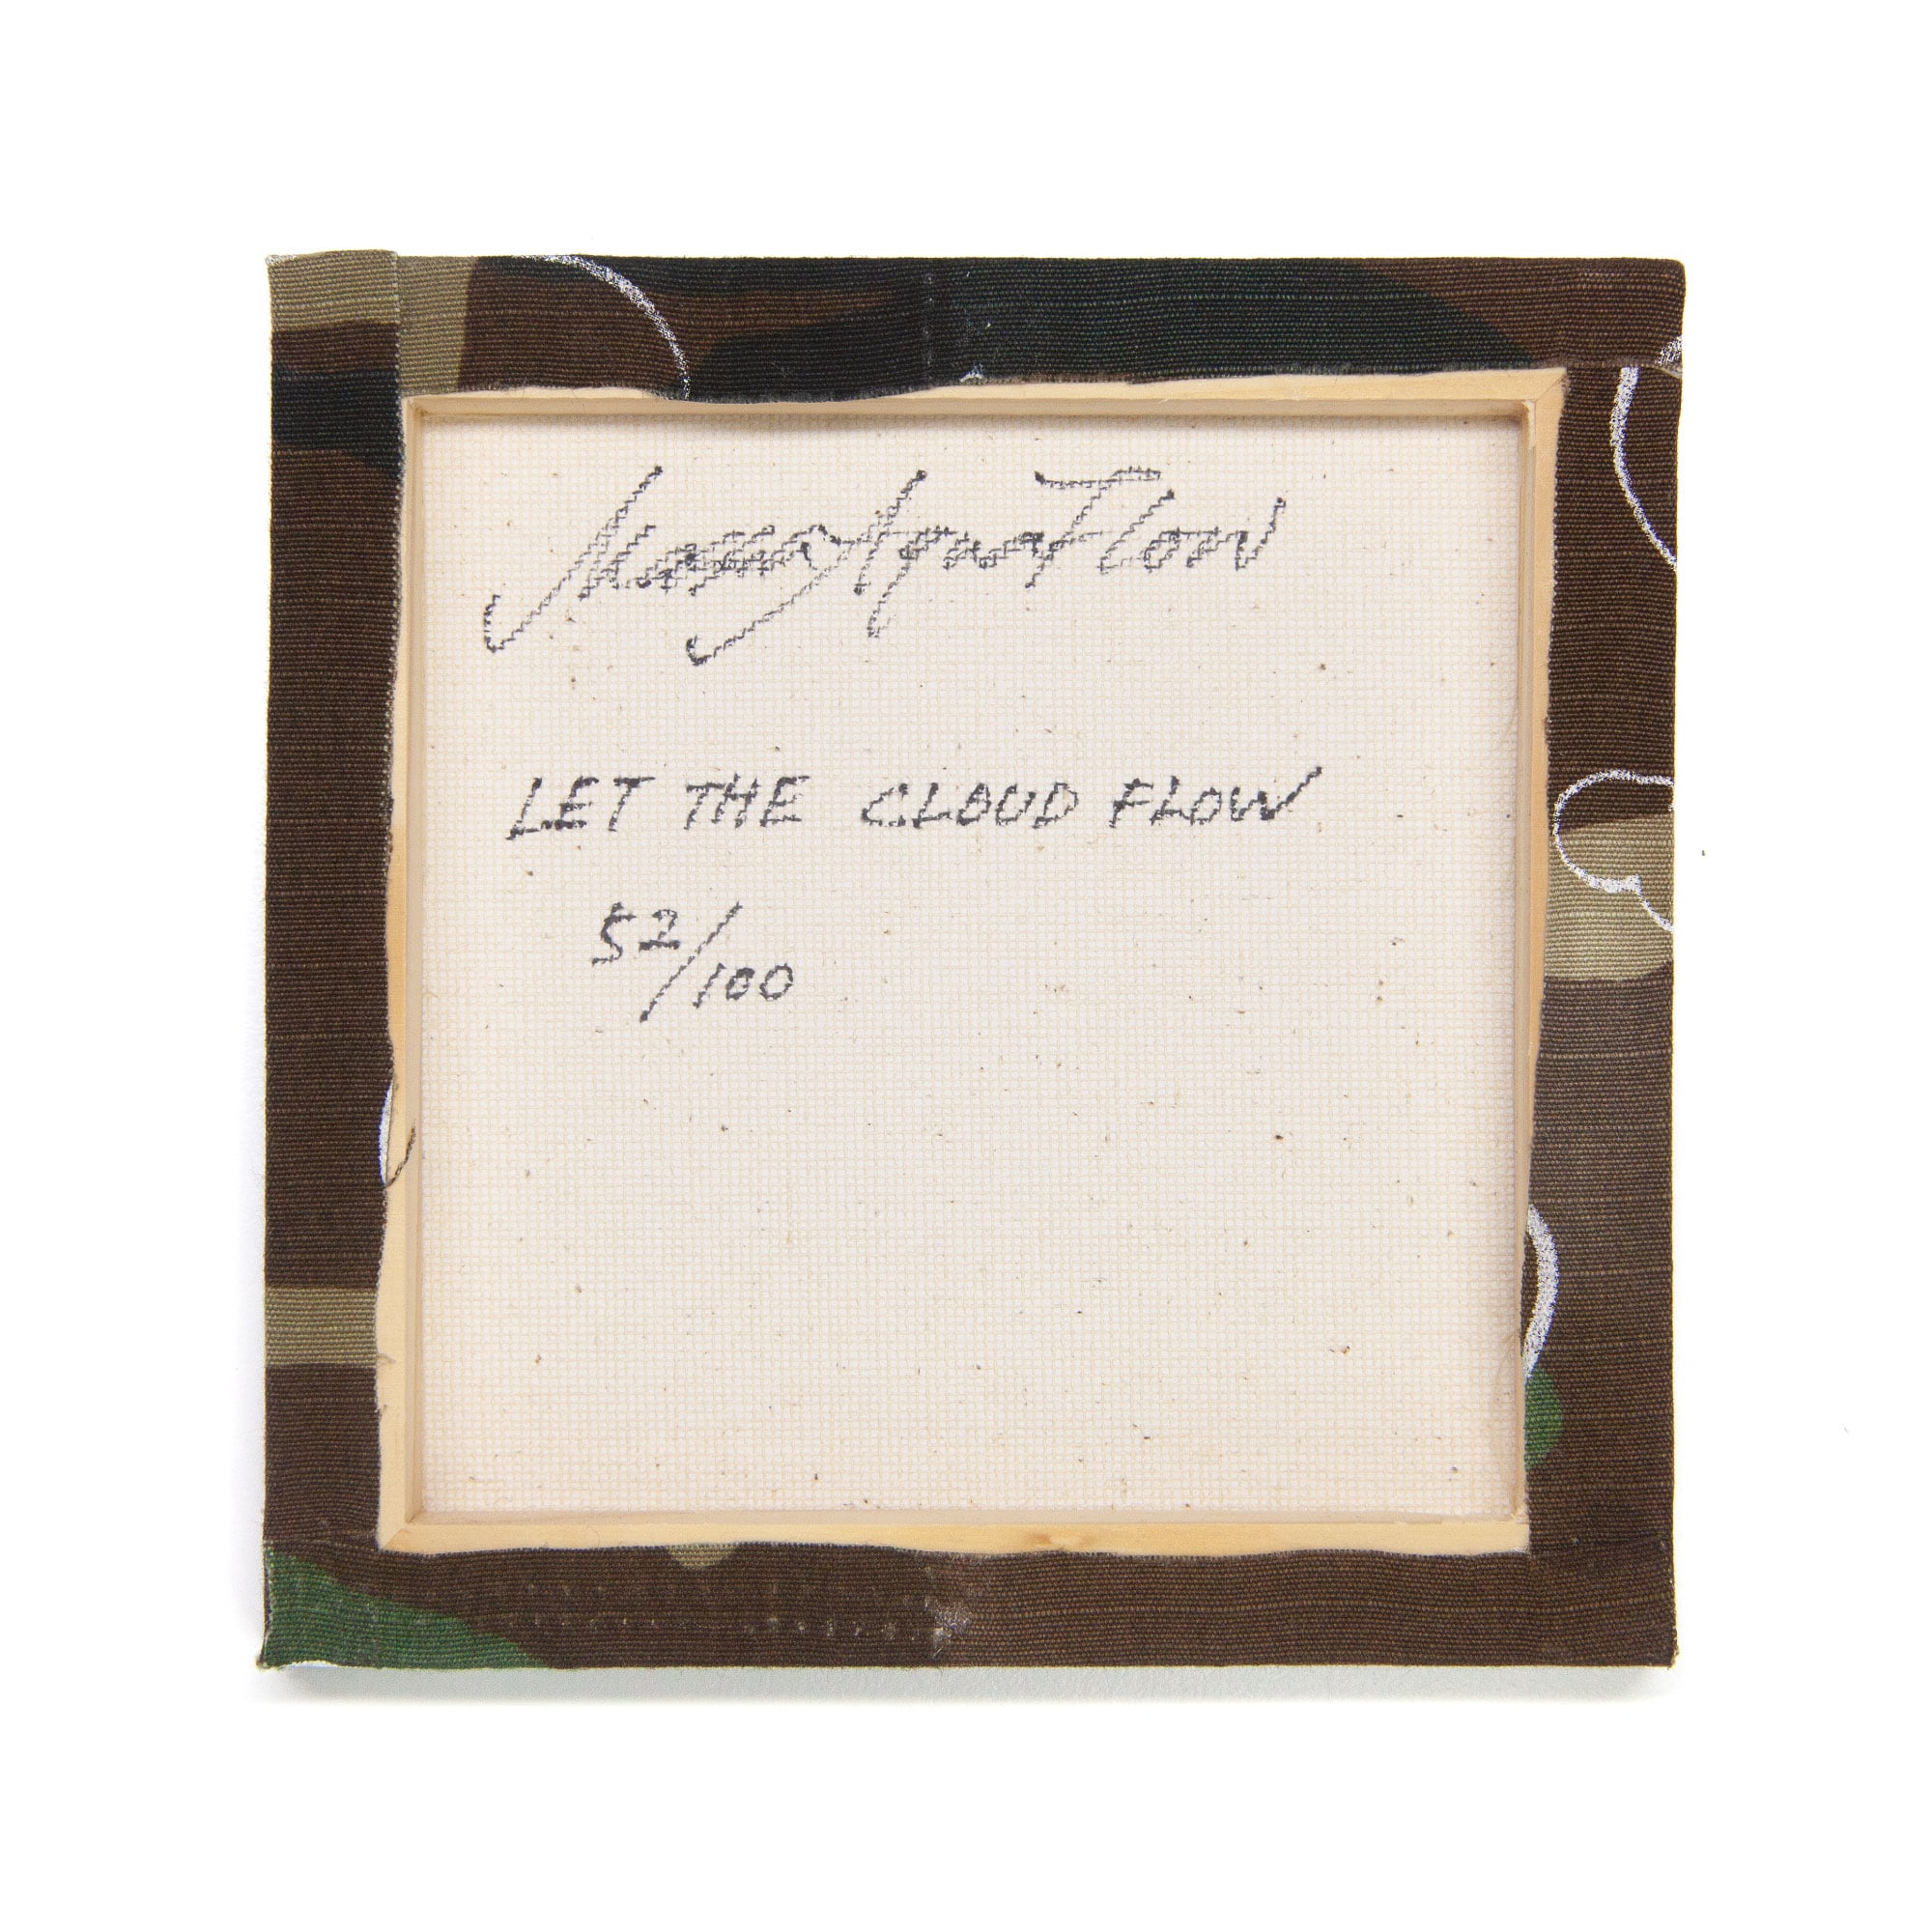 LET THE CLOUD FLOW
52/100